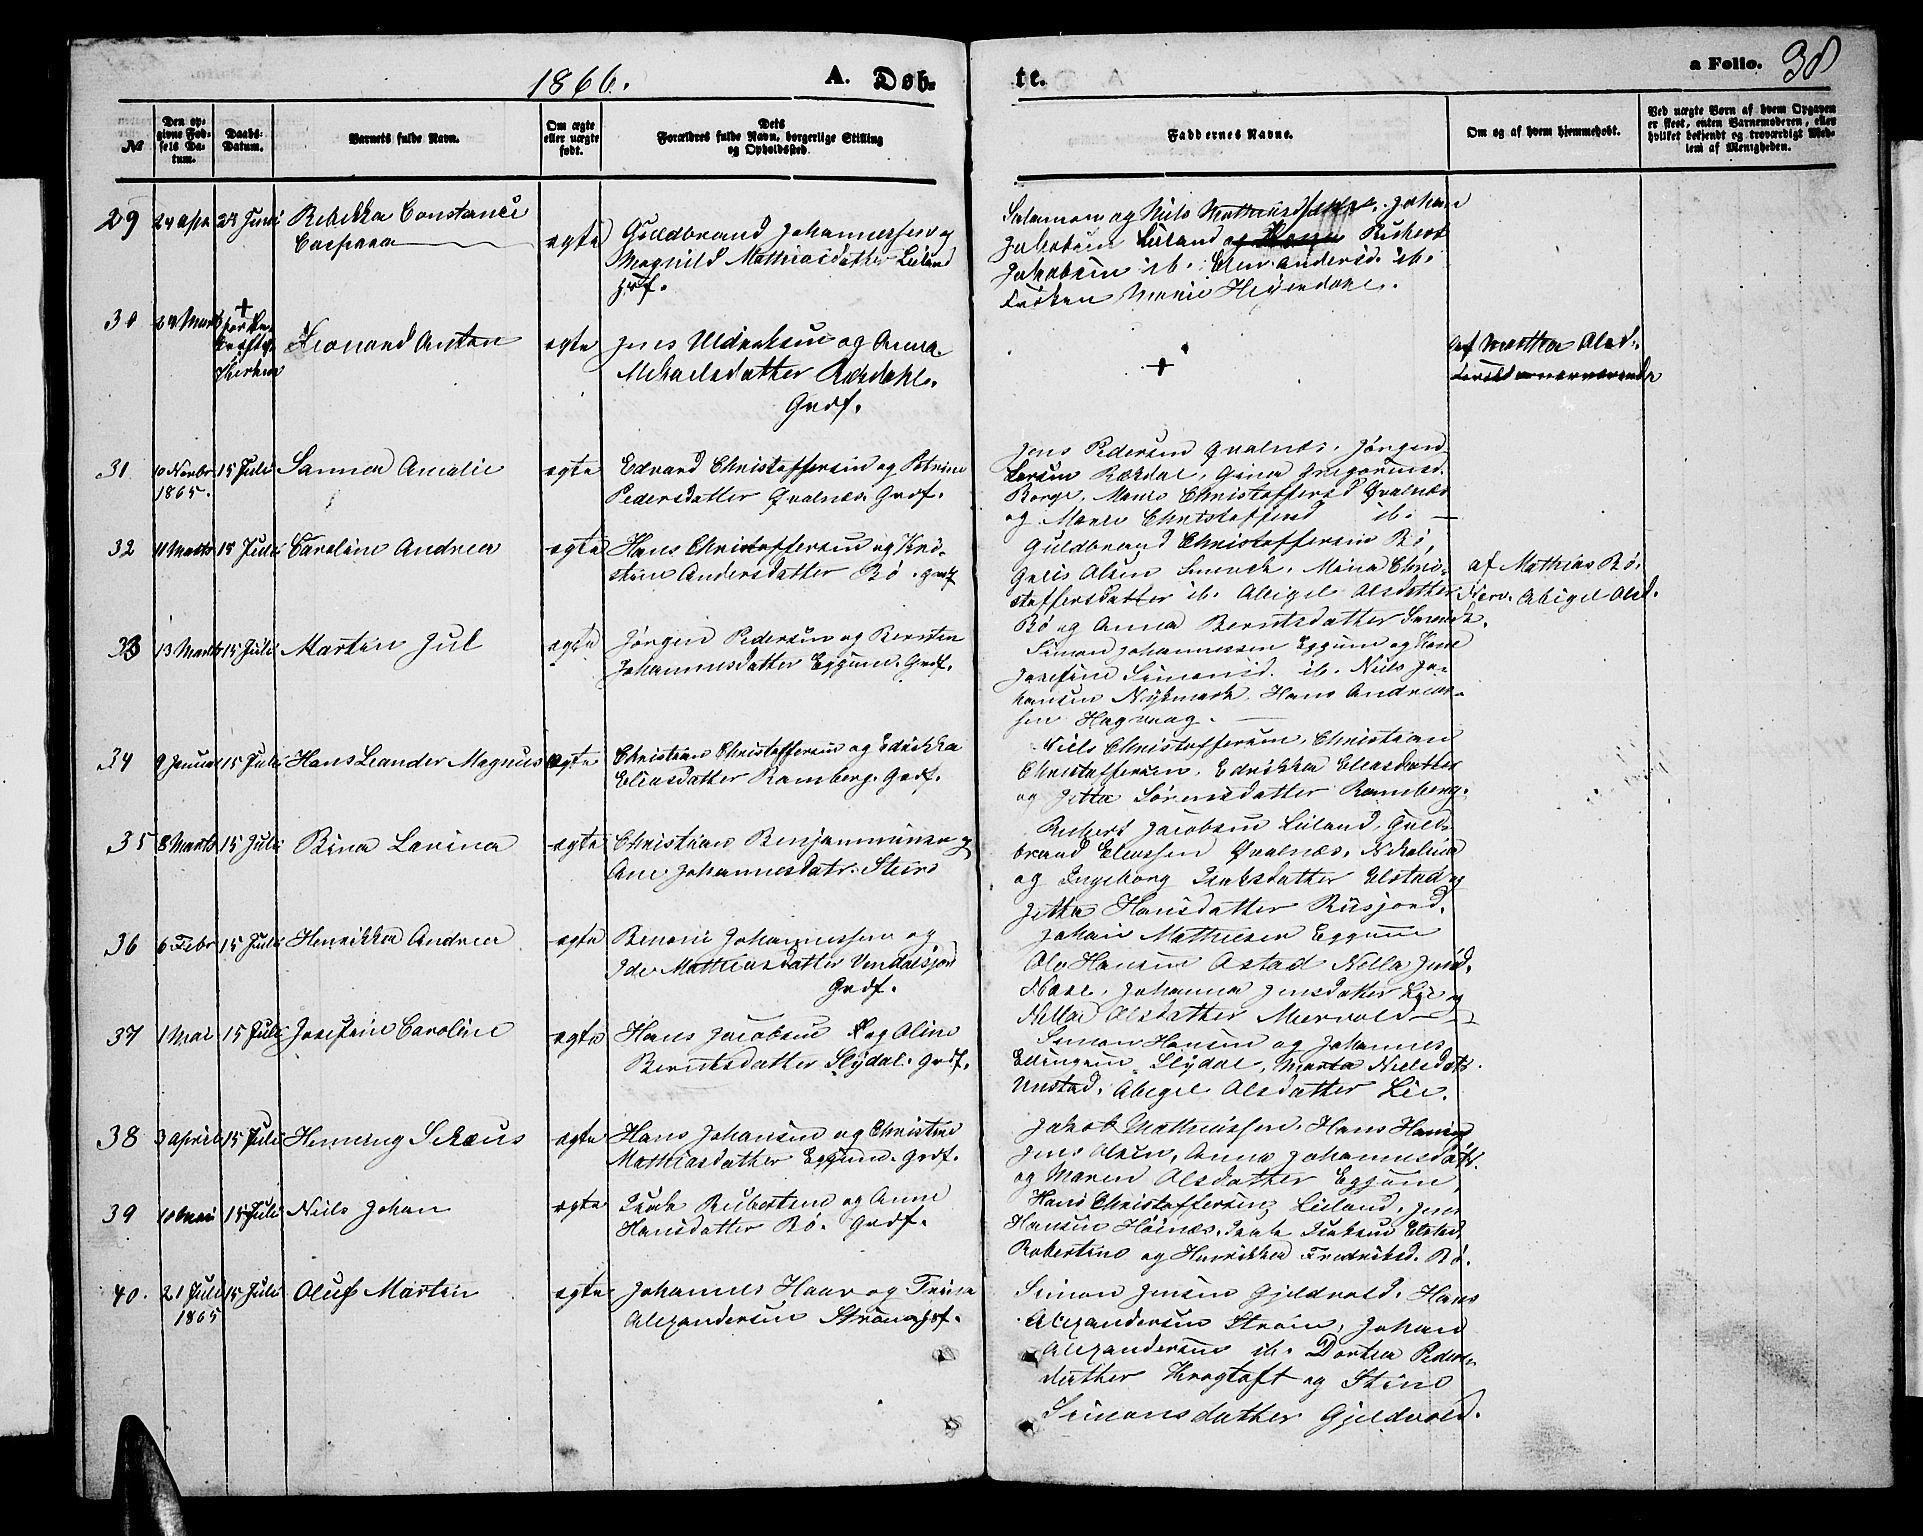 1866.
A. Døb-
te.
a Folio. 38
№
Den op-
givne Fød-
sels Da-
tum.
Daabs-
Datum.
Barnets fulde Navn.
Om ægte
eller uægte
født.
Dets
Forældres fulde Navn, borgerlige Stilling
og Opholdssted.
Faddernes Navne.
Om og af hvem hjemmedøbt.
Ved uægte Børn af hvem Opgaven
er skeet, enten Barnemoderen, eller
hvilket bekjendt og troværdigt Med-
lem af Menigheden.
29 24 Apr 24 Juni Rebekka Constance
ægte Guldbrand Johannessen og
Magnild Mathiasdatter Leiland
Salamon og Niels Johan
Jakobsen Leiland Rickert
Jakobsen ib. Elen Andersd. ib.
Frøken Marie Heyerdahl.
30 24 Marts + Leonard Anton
ægte Jens Uldriksen og Anna
Mikaelsdatter Rædahl.
Grdf.
+
af Martha Alsd.
31 10 Novbr 15 Juli Sanna Amalie
1865.
ægte Edvard Christoffersen og Petrine
Pedersdatter Qvalnæs. Grdf.
Jens Pedersen Qvalnæs. Jørgen
Larsen Rædal, Gina Gregoriusd.
Borge, Maren Christoffersd Qvalnæs
og Maren Christoffersd ib.
32 11 Marts 15 Juli Caroline Andrea
ægte Hans Christoffersen og Kri-
stine Andersdatter Bø. Grdf
Guldbrand Christoffersen Bø,
Olsen Smende. Mina Chri-
stoffersdatter ib. Abigel Alsdatter
Bø og Anna Berntsdatter Smende.
af Mathias Bø.
Nærv. Abigel Alsd.
33 13 Marts 15 Juli Martin Jul
ægte Jørgen Pedersen og Bernten
Johannesdatter Eggum. Grdf.
Simon Johannessen Eggum og
Josefine Simonsd. ib. Niels Jo-
hansen Nykmark. Hans Andreas-
sen Hagvaag.
34 9 Januar 15 Juli Hans Leander Magnus
ægte Christian Christoffersen og Edrikka
Eliasdatter Ramberg. Grdf.
Niels Christoffersen, Christian
Christoffersen, Edrikka Eliasdatter
og Jetta Sørensdatter Ramberg.
35 8 Marts 15 Juli Bina Lavina
ægte Christian Benjaminsen og
Ane Johannesdatr. Steiro
Rickert Jacobsen Leiland, Guld-
brand Eliassen Qvalnæs, Nikolina
og Ingeborg Isaksdatter Elstad og
Jetta Hansdatter Risjord.
36 6 Febr 15 Juli Henrikka Andrea
ægte Benoni Johannessen og
Ide Mathiasdatter Vendalsjord
Grdf.
Johan Mathisen Eggum
Ole Hansen Astad Nella Jensd.
Johanna Jensdatter Lie og
Nella Alsdatter Mærvold
37 1 Mai 15 Juli Josefine Caroline
ægte Hans Jacobsen og Aline
Berntsdatter Slydal. Grdf.
Simon Hansen og Johannes
Ellingsen Slydal, Marta Nielsdatr.
Unstad, Abigel Alsdatter Lie.
38 3 April 15 Juli Henning Sckæus
ægte Hans Johansen og Christine
Mathiasdatter Eggum. Grdf.
Jakob Mathiassen, Hans Hansen
Jens Olsen, Anna Johannesdatr.
og Maren Alsdatter Eggum.
39 10 Mai 15 Juli Niels Johan
ægte Isak Robertsen og Anne
Hansdatter Bø. Grdf.
Hans Christoffersen Leiland, Jens
Hansen Høinæs, Isak Isaksen Elstad
Robertine og Henrikka Fredriksd. Bø.
40. 21 Juli 15 Juli Oluf Martin
1865
ægte Johannes Haar og Trina
Alexandersen
Simon Jensen Gjeldvold. Hans
Alexandersen Strøm, Johan
Alexandersen ib. Dortea Peders-
datter Krogtoft og Stine
Simonsdatter Gjeldvold.